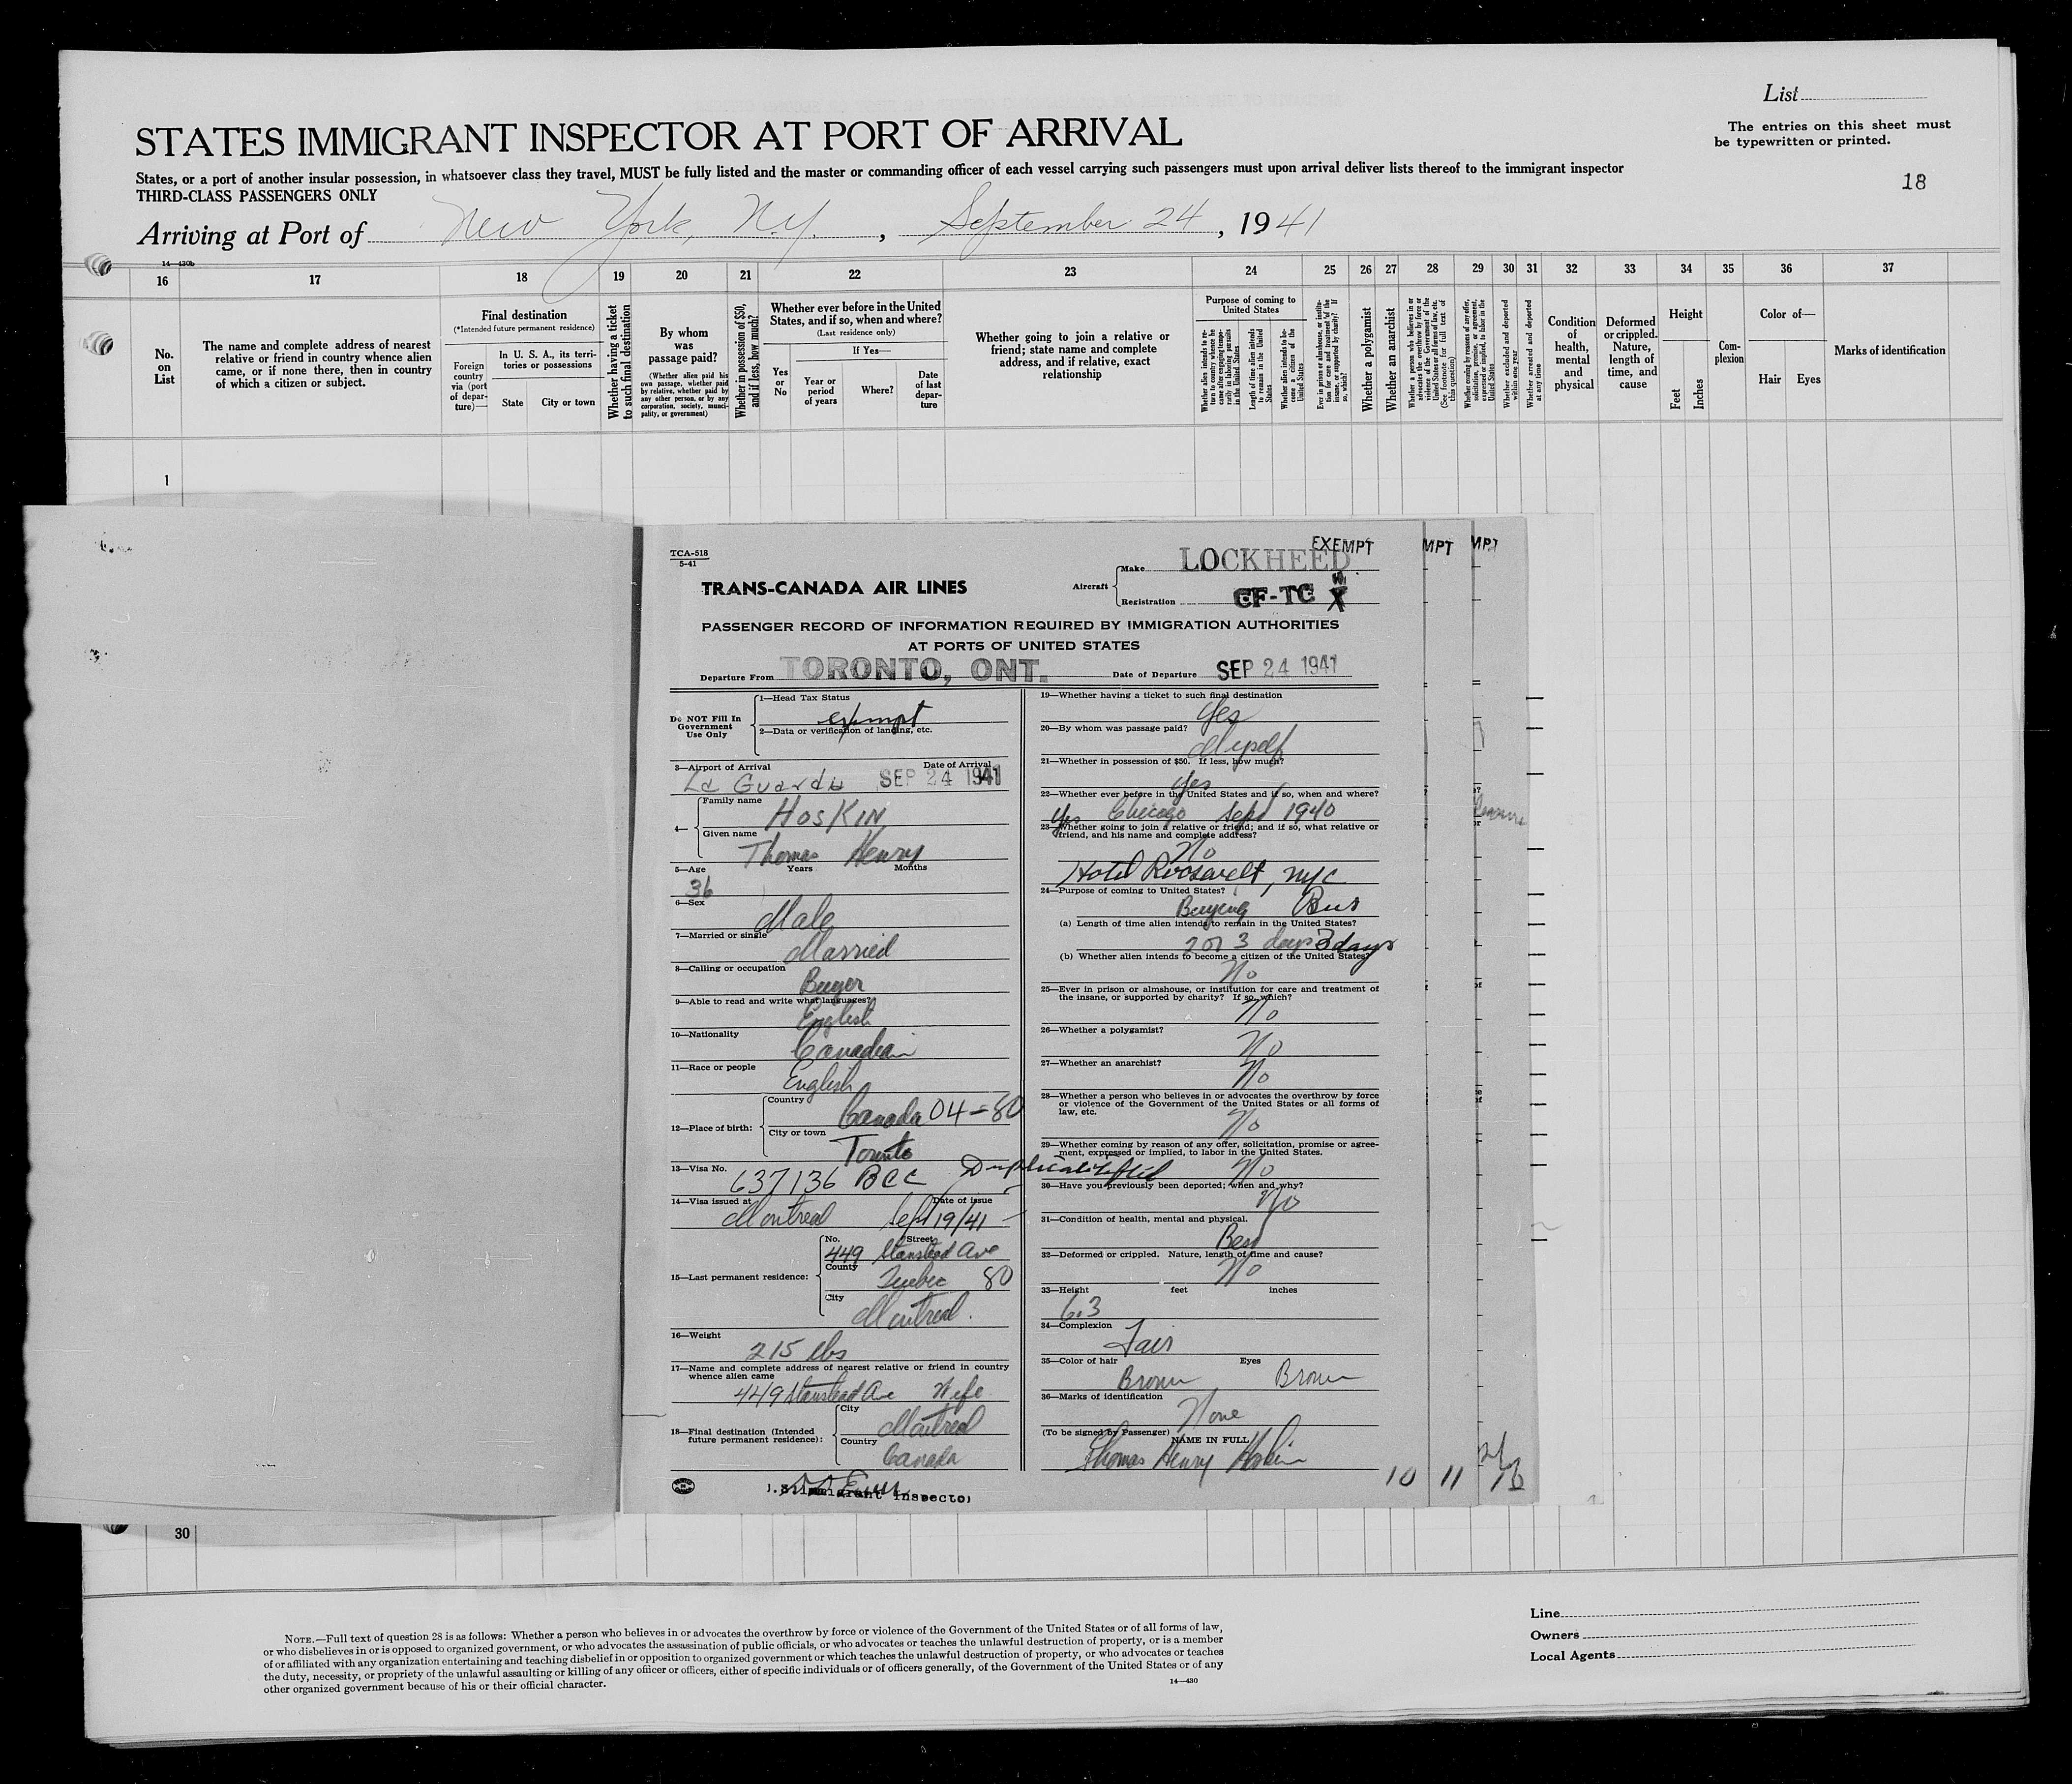 List
The entries on this sheet must
be typewritten or printed.
18
STATES IMMIGRANT INSPECTOR AT PORT OF ARRIVAL
States, or a port of another insular possession, in whatsoever class they travel, MUST be fully listed and the master or commanding officer of each vessel carrying such passengers must upon arrival deliver lists thereof to the immigrant inspector
THIRD-CLASS PASSENGERS ONLY
Arriving at Port of New York, N.Y., September 24, 1941
14—430b
16 17 18 19 20 21 22 23 24 25 26 27 28 29 30 31 32 33 34 35 36 37
No. on List
The name and complete address of nearest
relative or friend in country whence alien
came, or if none there, then in country
of which a citizen or subject.
Final destination
(*Intended future permanent residence)
Foreign country via (port of departure)—
In U. S. A., its territories or possessions
State
City or town
Whether having a ticket to such final destination
By whom was passage paid?
(Whether alien paid his own passage, whether paid by relative, whether paid by any other person, or by any corporation, society, municipality, or government)
Whether in possession of $50, and if less, how much?
Whether ever before in the United States, and if so, when and where?
(Last residence only)
Yes or No
If Yes—
Year or period of years
Where?
Date of last departure
Whether going to join a relative or
friend; state name and complete
address, and if relative, exact
relationship
Purpose of coming to United States
Whether alien intends to return to country whence he came after engaging temporarily in laboring pursuits in the United States
Length of time alien intends to remain in the United States
Whether alien intends to become a citizen of the United States
Ever in prison or almshouse, or institution for care and treatment of the insane, or supported by charity? If so, which?
Whether a polygamist
Whether an anarchist
Whether a person who believes in or advocates the overthrow by force or violence of the Government of the United States or all forms of law, etc. (See footnote for full text of this question)
Whether coming by reason of any offer, solicitation, promise, or agreement, expressed or implied, to labor in the United States
Whether excluded and deported within one year
Whether arrested and deported at any time
Condition of health, mental and physical
Deformed or crippled. Nature, length of time, and cause
Height
Feet
Inches
Complexion
Color of—
Hair
Eyes
Marks of identification
1
TCA-518
5-41
TRANS-CANADA AIR LINES
Aircraft
Make LOCKHEED
EXEMPT
MPT
MPT
Registration CF-TC X
PASSENGER RECORD OF INFORMATION REQUIRED BY IMMIGRATION AUTHORITIES
AT PORTS OF UNITED STATES
Departure From TORONTO, ONT. Date of Departure SEP 24 1941
Do NOT Fill In
Government
Use Only
1—Head Tax Status
exempt
2—Data or verification of landing, etc.
3—Airport of Arrival Date of Arrival
La Guardia SEP 24 1941
4— Family name
HOSKIN
Given name
Thomas Henry
5—Age Years Months
36
6—Sex
Male
7—Married or single
Married
8—Calling or occupation
Buyer
9—Able to read and write what languages?
English
10—Nationality
Canadian
11—Race or people
English
12—Place of birth:
Country
Canada 04-80
City or town
Toronto
13—Visa No.
637136 BCC Duplicate lifted
14—Visa issued at Date of issue
Montreal Sept 19/41
15—Last permanent residence:
No. Street
449 Stanstead Ave
County
Quebec 80
City
Montreal.
16—Weight
215 lbs
17—Name and complete address of nearest relative or friend in country
whence alien came
449 Stanstead Ave Wife
18—Final destination (Intended
future permanent residence):
City
Montreal
Country
Canada
Immigrant Inspector
19—Whether having a ticket to such final destination
Yes
20—By whom was passage paid?
Myself
21—Whether in possession of $50. If less, how much?
Yes
22—Whether ever before in the United States and if so, when and where?
Yes Chicago Sept 1940
23—Whether going to join a relative or friend; and if so, what relative or
friend, and his name and complete address?
No
Hotel Roosevelt, NYC
24—Purpose of coming to United States?
Buying Bus
(a) Length of time alien intends to remain in the United States?
2 or 3 days 3 days
(b) Whether alien intends to become a citizen of the United States?
No
25—Ever in prison or almshouse, or institution for care and treatment of
the insane, or supported by charity? If so, which?
No
26—Whether a polygamist?
No
27—Whether an anarchist?
No
28—Whether a person who believes in or advocates the overthrow by force
or violence of the Government of the United States or all forms of
law, etc.
No
29—Whether coming by reason of any offer, solicitation, promise or agree-
ment, expressed or implied, to labor in the United States.
No
30—Have you previously been deported; when and why?
No
31—Condition of health, mental and physical.
Best
32—Deformed or crippled. Nature, length of time and cause?
No
33—Height feet inches
6.3
34—Complexion
Fair
35—Color of hair Eyes
Brown Brown
36—Marks of identification
None
(To be signed by Passenger) NAME IN FULL
Thomas Henry Hoskin
10 11
30
NOTE.—Full text of question 28 is as follows: Whether a person who believes in or advocates the overthrow by force or violence of the Government of the United States or of all forms of law,
or who disbelieves in or is opposed to organized government, or who advocates the assassination of public officials, or who advocates or teaches the unlawful destruction of property, or is a member
of or affiliated with any organization entertaining and teaching disbelief in or opposition to organized government or which teaches the unlawful destruction of property, or who advocates or teaches
the duty, necessity, or propriety of the unlawful assaulting or killing of any officer or officers, either of specific individuals or of officers generally, of the Government of the United States or of any
other organized government because of his or their official character.
14—430
Line
Owners
Local Agents